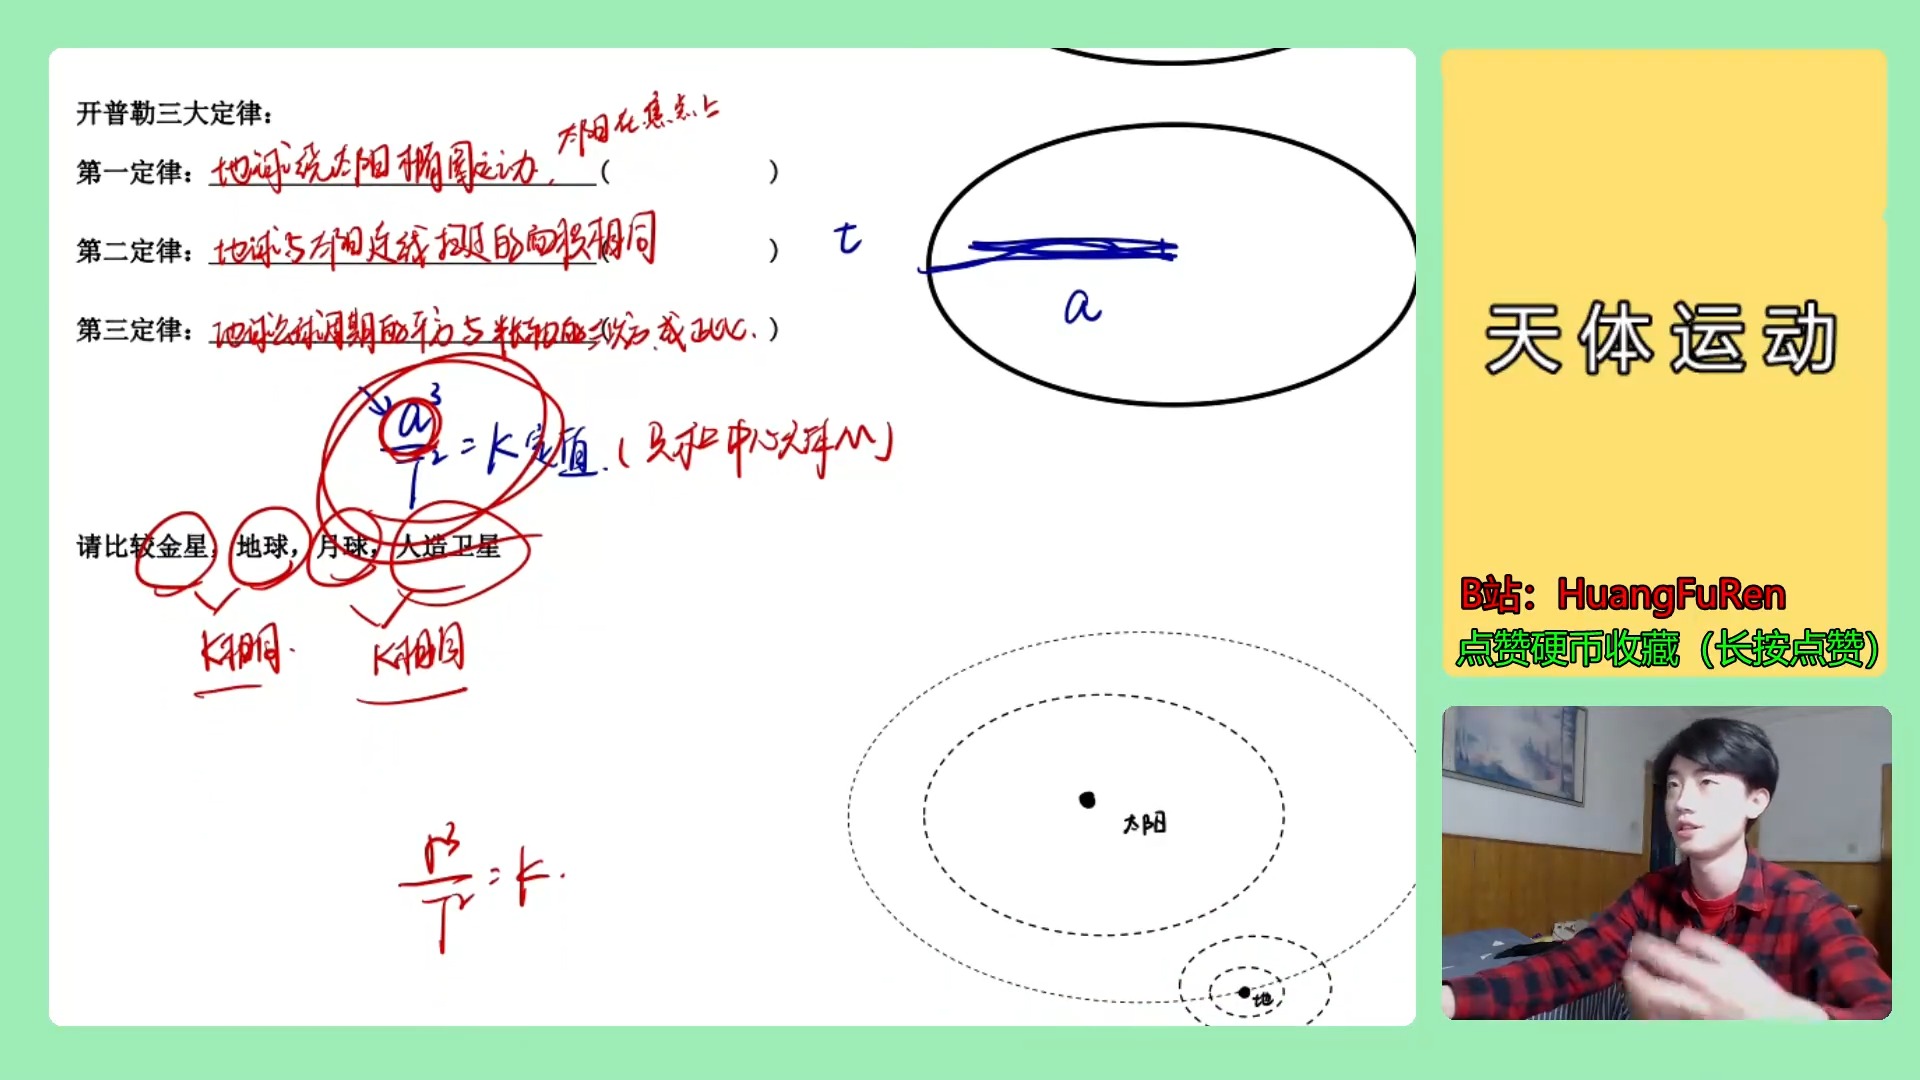 开普勒三大定律：
太阳在焦点上
第一定律：地球绕太阳椭圆运动.（ ）
第二定律：地球与太阳连线扫过的面积相同（ ）
t
a
第三定律：地球公转周期的平方与半长轴的三次方成正比.（ ）
a³/T²=K定值.（只和中心天体M）
请比较金星，地球，月球，人造卫星
K相同. K相同
太阳
r³/T²=K.
地
天体运动
B站：HuangFuRen
点赞硬币收藏（长按点赞）